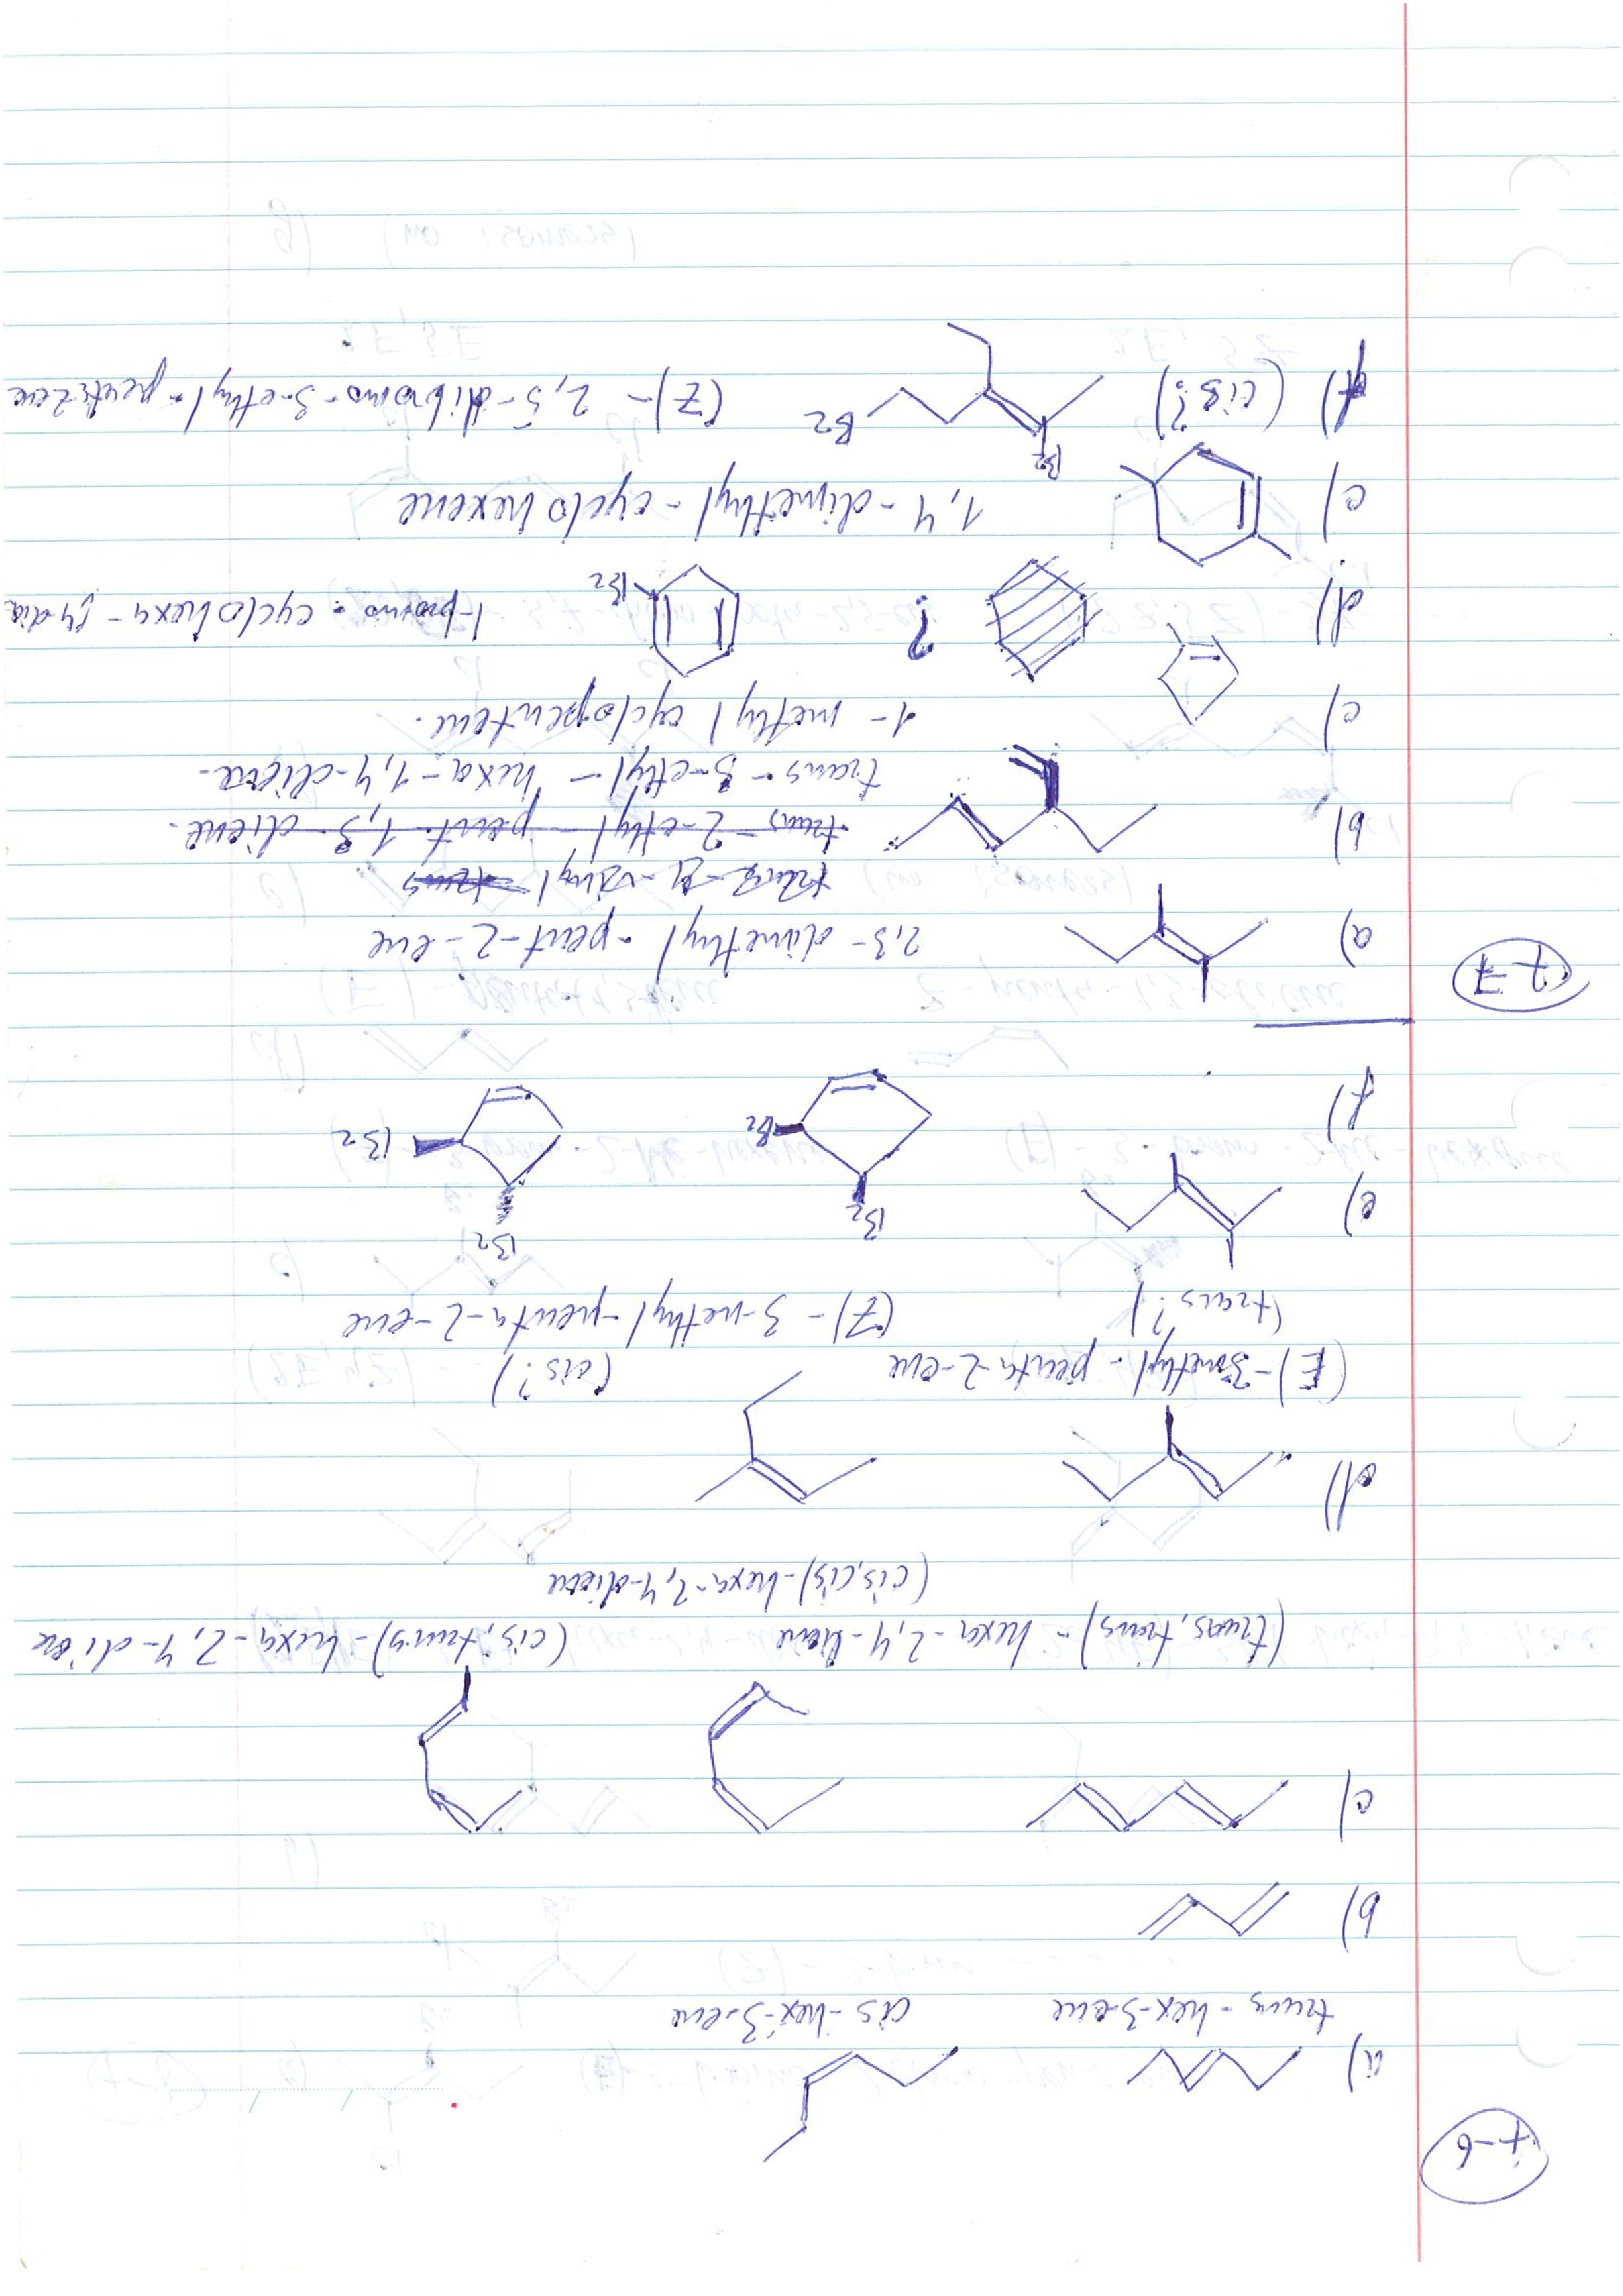 7-6
a)
trans - hex-3-ene cis-hex-3-ene
b)
c)
(trans, trans) - hexa-2,4-diene (cis, trans) - hexa-2,4-diene
(cis,cis)-hexa-2,4-diene
d)
(E)-3methyl-penta-2-ene (cis?)
(trans?) (Z)-3-methyl-penta-2-ene
e) Br Br
f) Br Br
7-7
a) 2,3-dimethyl-pent-2-ene
b) trans-2-ethyl-pent-1,3-diene.
trans-3-ethyl-hexa-1,4-diene.
c) 1-methyl cyclopentene.
d) ? Br 1-bromo-cyclohexa-1,4-die
e) 1,4-dimethyl-cyclohexene
f) (cis?) Br Br (Z)-2,5-dibromo-3-ethyl-pent-2-ene